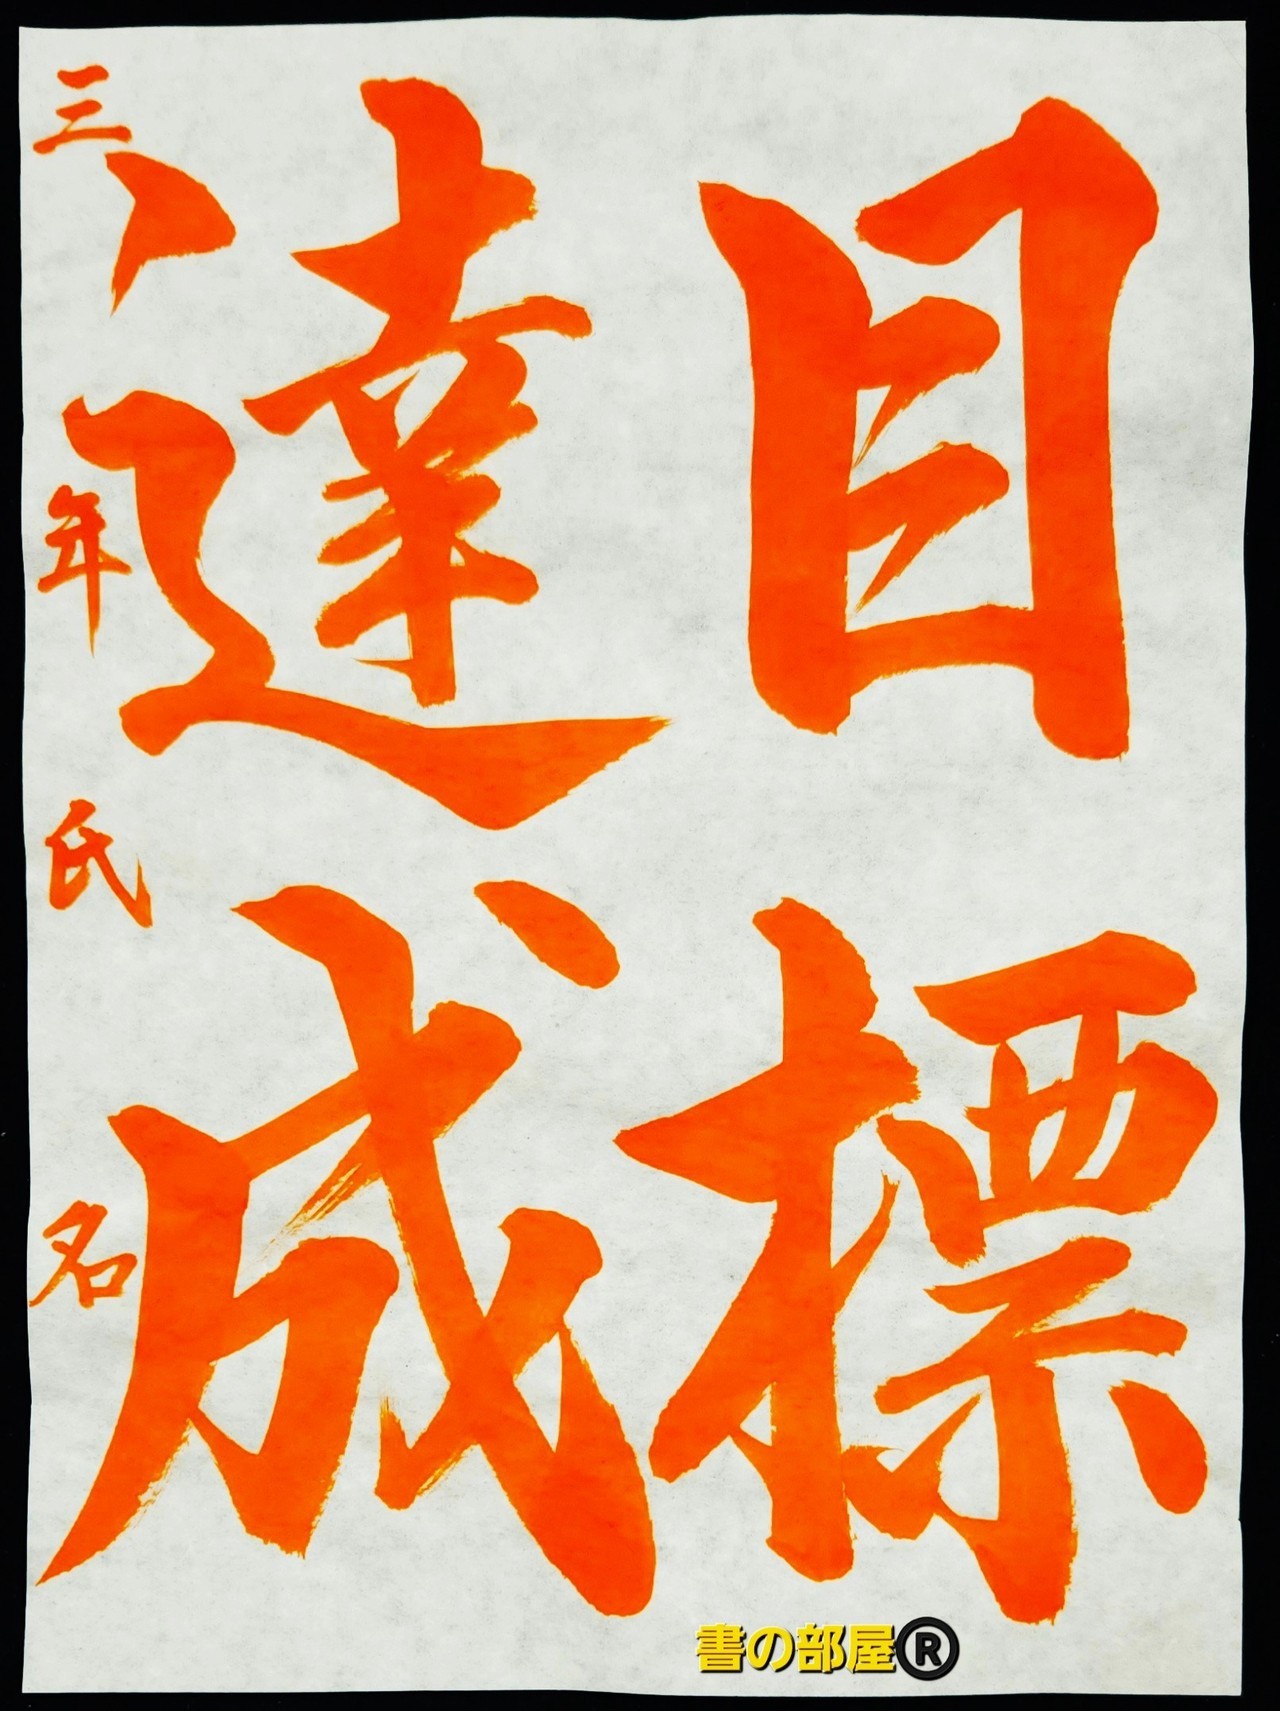 目標
達成
三年 氏名
書の部屋®